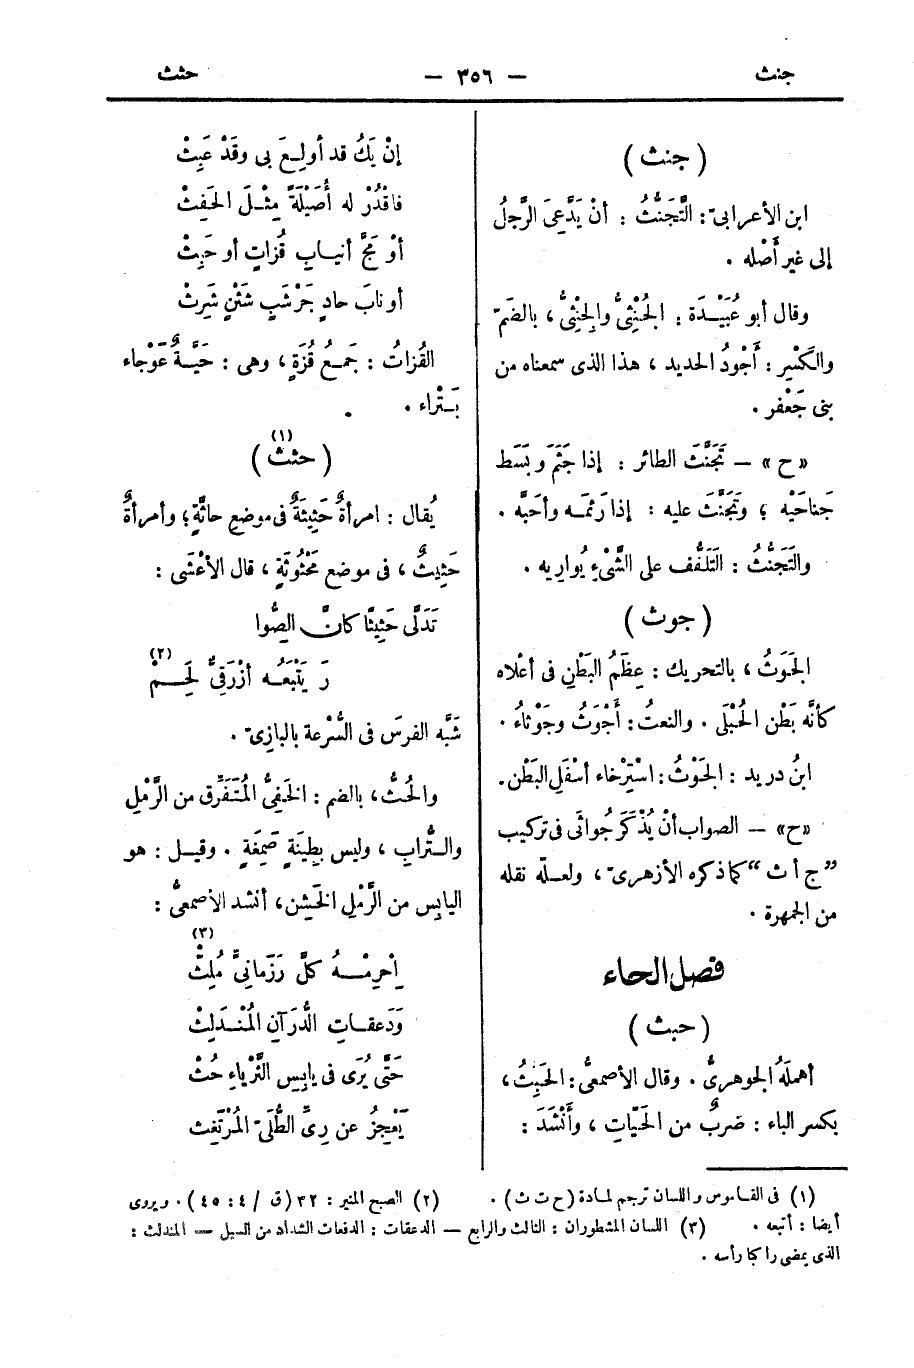 جنث — ٣٥٦ — حثث
( جنث )
ابن الأعرابىّ : التَّجَنُّثُ : أنْ يَدَّعِىَ الرَّجلُ
إلى غير أَصْله .
وقال أبو عُبَيْدَة : الجُنْثِىُّ والجِنْثِىُّ ، بالضمّ
والكَسْرِ : أَجْودُ الحديد ، هذا الذى سمعناه من
بنى جَعْفر .
«ح» — تَجَنَّثَ الطائر : إذا جَثَمَ وبَسَط
جَناحَيْه ؛ وتَجَنَّثَ عليه : إذا رَئمَه وأحَبَّه .
والتَجَنُّثُ : التَلَفُّف على الشَّىْءِ يُوارِيه .
( جوث )
الجَوَثُ ، بالتحريك : عِظَمُ البَطْنِ فى أعْلاه
كأنَّه بَطْن الحُبْلَى . والنعتُ : أَجْوَثُ وجَوْثاءُ .
ابنُ دريد : الجَوْثُ : اسْتِرْخاء أسْفَلِ البَطْن .
«ح» — الصواب أنْ يُذْكَرَ جُواثَى فى تركيب
”ج أ ث“ كما ذكره الأزهرىّ ، ولعلّه نقله
من الجمهرة .
فصل الحاء
( حبث )
أهملَهُ الجوهرىُّ . وقال الأصمعىُّ : الحَبِثُ ،
بكسر الباء : ضربٌ من الحَيّاتِ ، وأَنْشَدَ :
إنْ يَكُ قد أولِعَ بى وقَدْ عَبِثْ
فاقْدُرْ له أُصَيْلَةً مِثْلَ الحَفِثْ
أوْ مَجَّ أنيابِ قُزاتٍ أو حَبِثْ
أو نابَ حادٍ جَرْشَبٍ شَثْنٍ شَرِثْ
القُزاتُ : جَمعُ قُزَةٍ ، وهى : حَيَّةٌ عَوْجاء
بَتْراء .
( حثث ) (١)
يُقال : امرأةٌ حَثِيثَةٌ فى موضع حاثَّةٍ ؛ وأمرأةٌ
حَثِيثٌ ، فى موضع مَحْثُوثَةٍ ، قال الأعْشى :
تَدَلَّى حَثِيثًا كانَّ الصُّوا
رَ يَتْبَعُه أزْرَقِىٌّ لَحِمْ (٢)
شَبَّه الفرسَ فى السُّرْعة بالبازِىّ .
والحُثُّ ، بالضم : الخَفِىُّ المُتَفَرِّق من الرَّمْلِ
والتُّرابِ ، وليس بِطِينَةٍ صَمِغَةٍ . وقيل : هو
اليابِس من الرَّمْلِ الخَشِنِ ، أنشد الأصمعىُّ :
اِحْرِمْهُ كلَّ رَزَمانِىٍّ مُلِثّْ (٣)
وَدَعقاتِ الدَّرَآنِ المُنْدَلِثْ
حَتَّى يُرَى فى يابِسِ الثَّرْياءِ حُثْ
يَعْجِزُ عن رِىِّ الطُّلَىّ المُرْتَغِث
(١) فى القاموس واللسان ترجم لمادة (ح ت ث) . (٢) الصبح المنير : ٣٢ (ق / ٤ : ٤٥) . ويروى
أيضا : أتبعه . (٣) اللسان المشطوران : الثالث والرابع — الدعقات : الدفعات الشداد من السيل — المندلث :
الذى يمضى راكبا رأسه .